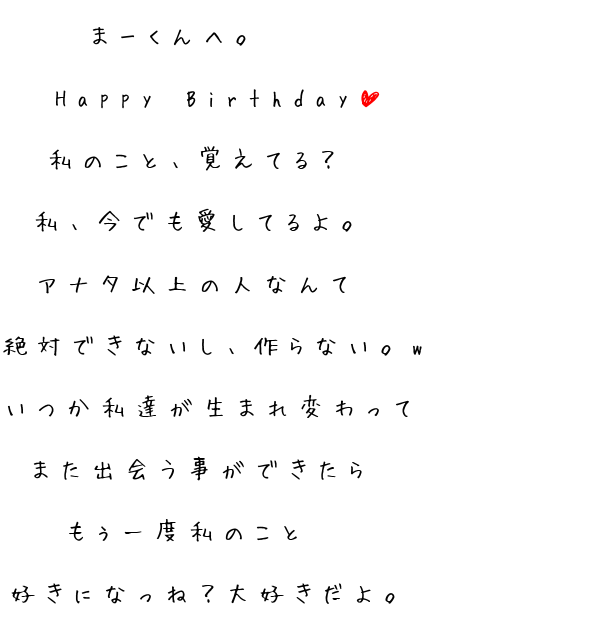 まーくんへ。
Happy Birthday
私のこと、覚えてる?
私、今でも愛してるよ。
アナタ以上の人なんて
絶対できないし、作らない。w
いつか私達が生まれ変わって
また出会う事ができたら
もぅ一度私のこと
好きになっね?大好きだよ。